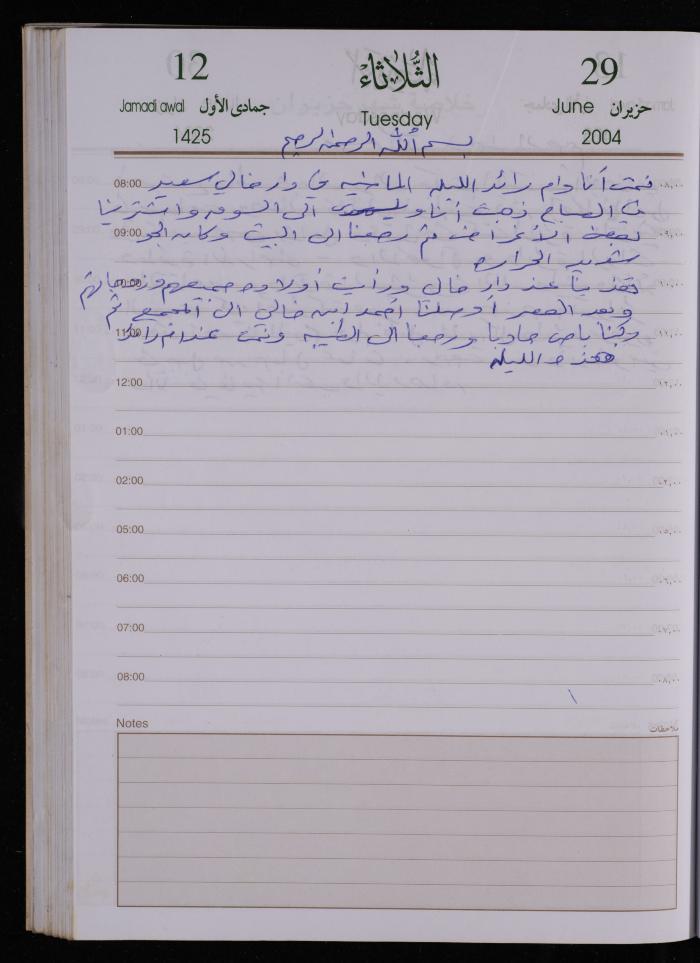 12 الثُّلَاثَاء 29
Jamadi awal جمادى الأول Tuesday June حزيران
1425 2004
بسم الله الرحمن الرحيم
08:00 نمت أنا وام رائد الليله الماضيه في دار خالي سعيد
في الصباح ذهبت أنا و الى السوق واشترينا
09:00 بعض الأغراض ثم رجعنا الى البيت وكان الجو
شديد الحراره
تغدينا عند دار خالي ورأيت أولاده جميعهم وزوجاتهم
وبعد العصر أوصلنا أحمد ابن خالي الى المجمع ثم
11:00 ركبنا باص حاديا ورجعنا الى الطيبه ونمت عند ام رائد
هذه الليله
12:00
01:00
02:00
05:00
06:00
07:00
08:00
Notes ملاحظات